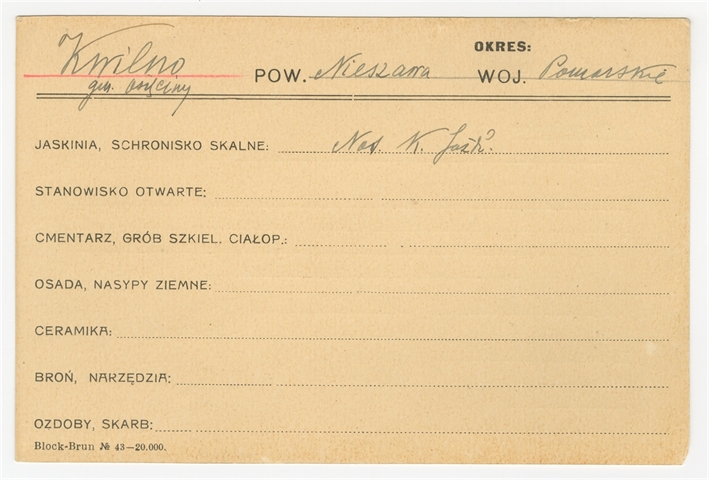 OKRES:
Kwilno POW. Nieszawa WOJ. Pomorskie
gm. Osięciny
JASKINIA, SCHRONISKO SKALNE: Nad. K. Jażdż.
STANOWISKO OTWARTE:
CMENTARZ, GRÓB SZKIEL. CIAŁOP.:
OSADA, NASYPY ZIEMNE:
CERAMIKA:
BROŃ, NARZĘDZIA:
OZDOBY, SKARB:
Block-Brun № 43—20.000.